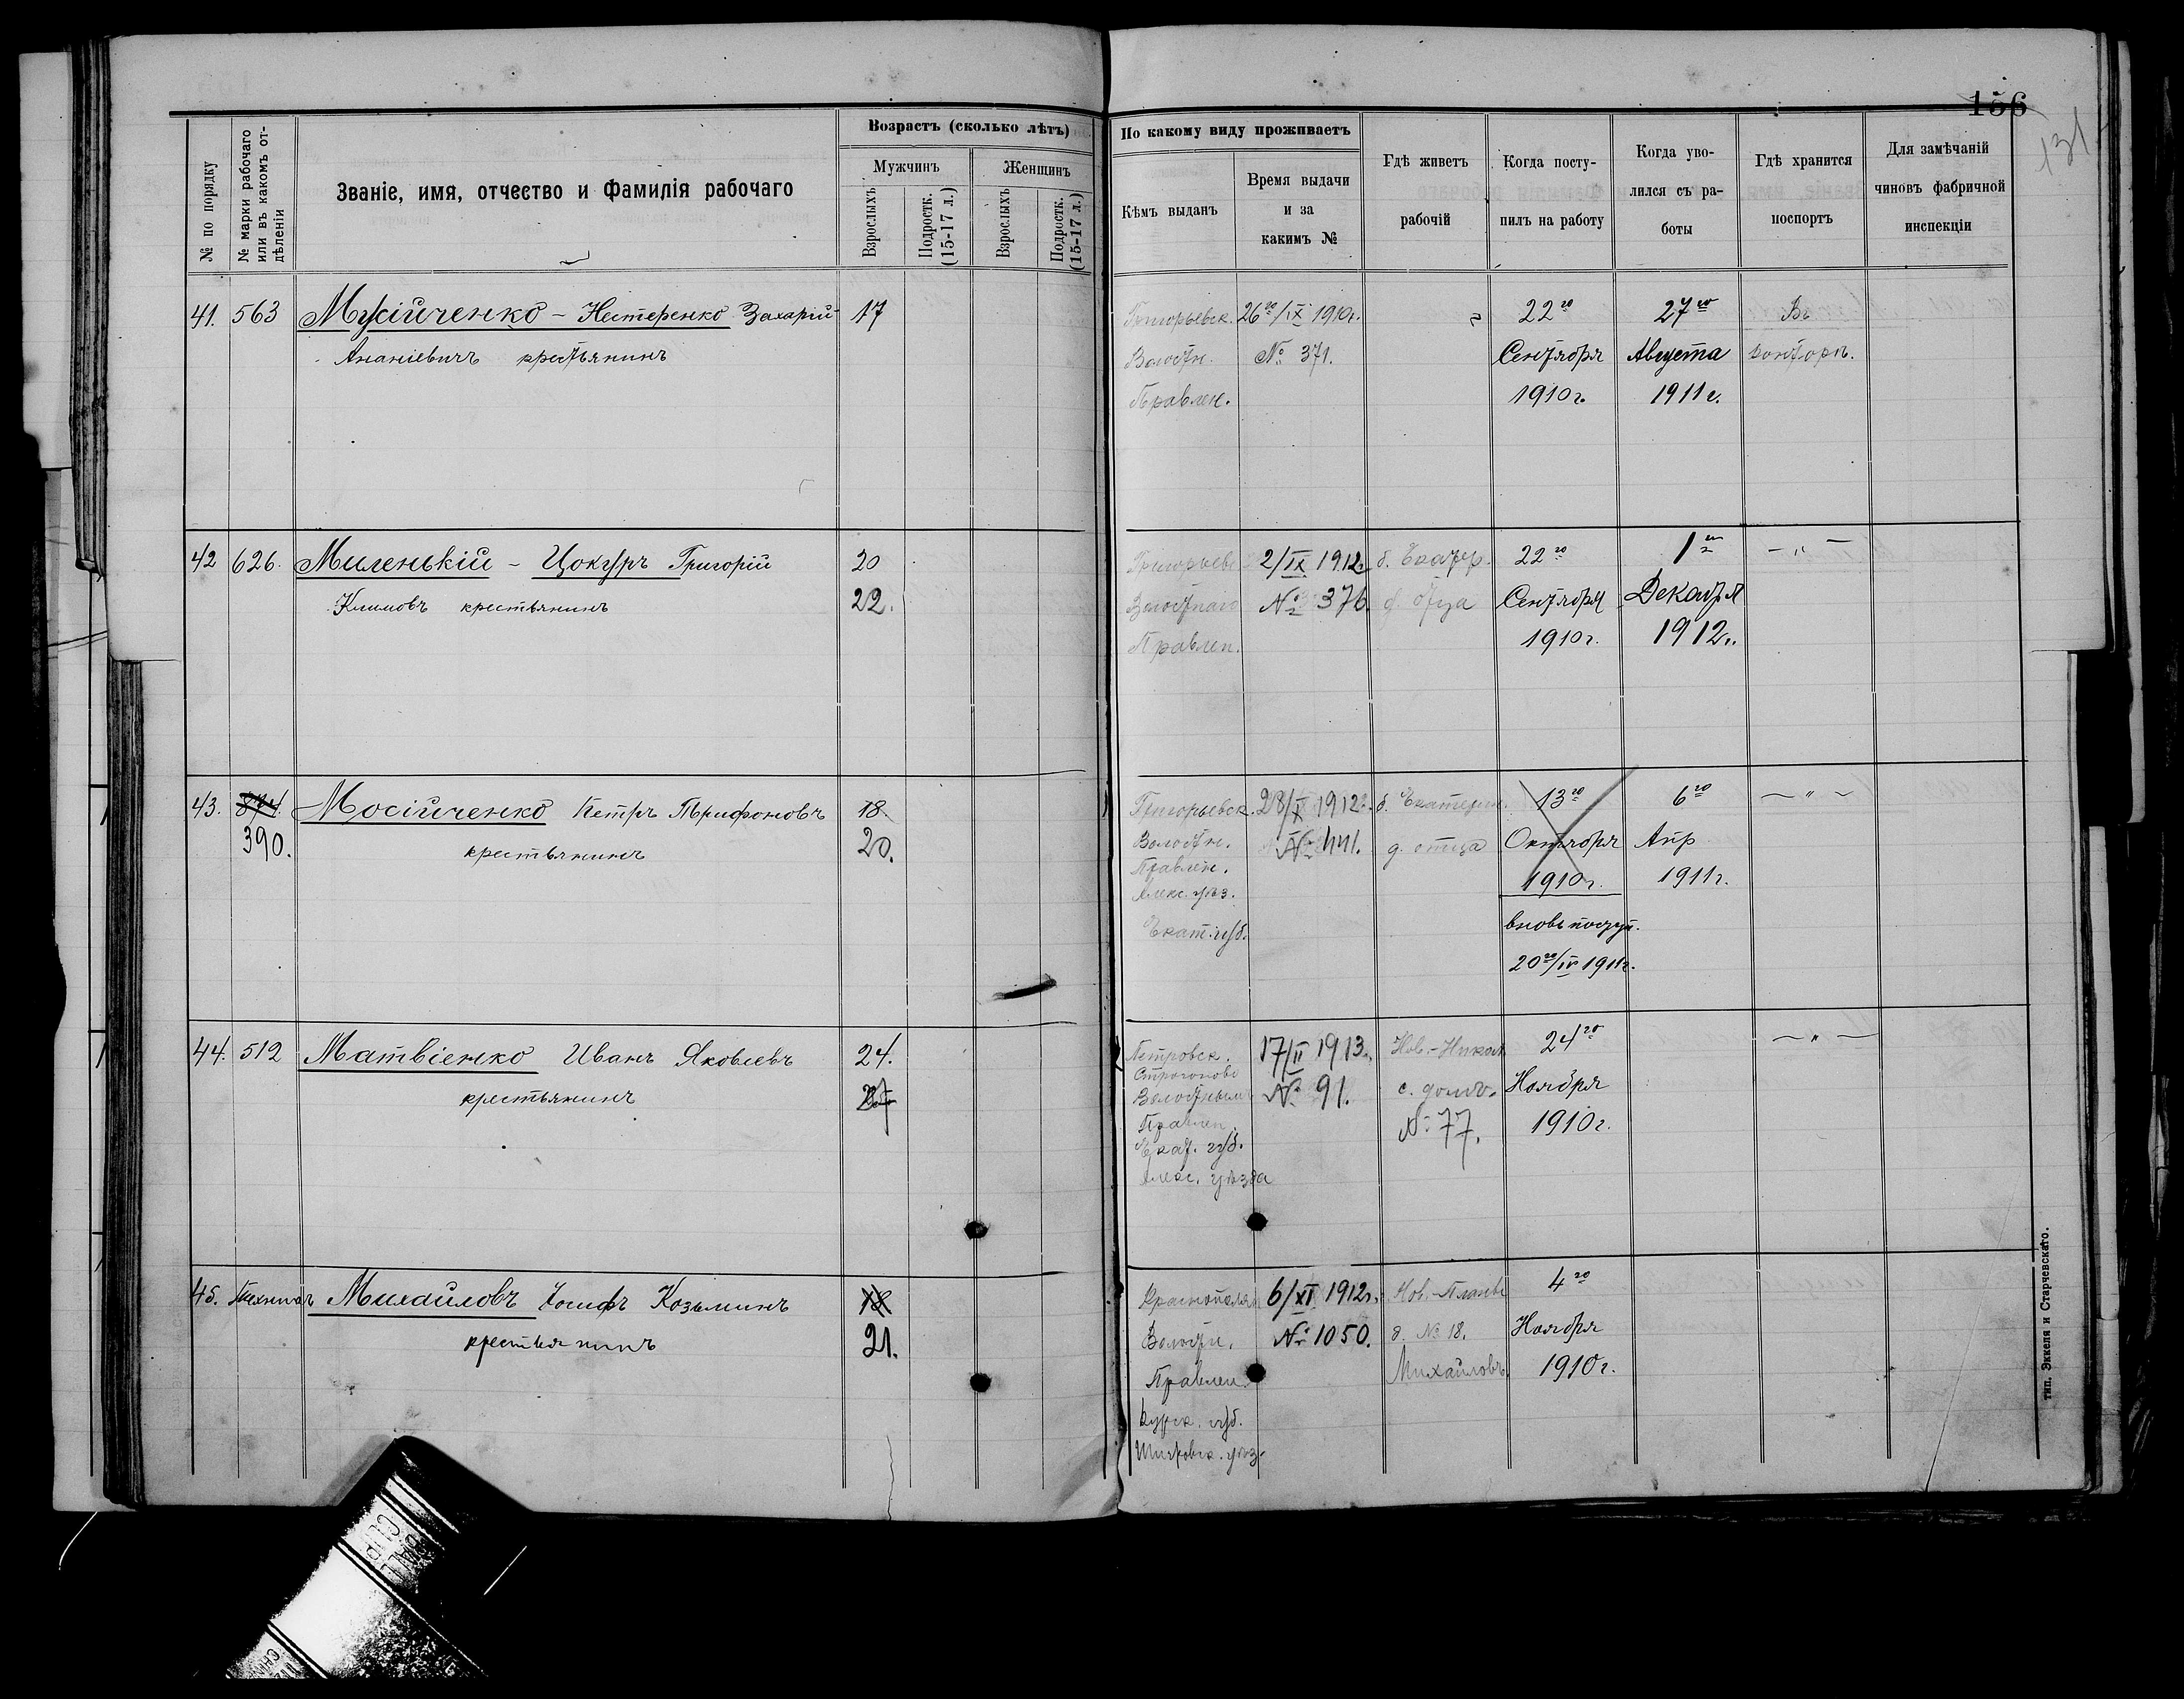 156
131
№ по порядку
№ марки рабочаго или въ какомъ отдѣленіи
Званіе, имя, отчество и фамилія рабочаго
Возрастъ (сколько лѣтъ)
Мужчинъ
Женщинъ
Взрослыхъ
Подростк. (15-17 л.)
Взрослыхъ
Подростк. (15-17 л.)
По какому виду проживаетъ
Кѣмъ выданъ
Время выдачи
и за
какимъ №
Гдѣ живетъ
рабочій
Когда посту-
пилъ на работу
Когда уво-
лился съ ра-
боты
Гдѣ хранится
поспортъ
Для замѣчаній
чиновъ фабричной
инспекціи
41. 563 Мусійченко - Нестеренко Захарій 17
Ананіевичъ крестьянинъ
Григорьевск. 26го/IX 1910г. 22го 27го Въ
Волостн. № 371. Сентября Августа конторѣ.
Правлен. 1910г. 1911г.
42 626. Миленькій - Цокуръ Григорій 20
Климовъ крестьянинъ 22.
Григорьевс 2/IX 1912г. б. Екатер. 22го 1го — „ —
Волостного № 376 д. отца Сентября Декабря
Правлен. 1910г. 1912г.
43. 874. Мосійченко Петръ Трифоновъ 18.
390. крестьянинъ 20.
Григорьевск. 28/X 1912г. б. Екатерин. 13го 6го — „ —
Волостн. № 441. д. отца Октября Апр
Правлен. 1910г. 1911г.
Алекс. уѣз.
Екат. губ. вновь поступ.
20го/IV 1911г.
44. 512 Матвіенко Иванъ Яковлевъ 24.
крестьянинъ
Петровск. 17/II 1913г. Нов.-Никол 24го — „ —
Строгонове
Волостнымъ № 91. с. домъ. Ноября
Правлен. № 77. 1910г.
Екат. губ.
Алекс. уѣзда
45. Техникъ Михайловъ Іосифъ Козьминъ 18
крестьянинъ 21.
Краснополян 6/XI 1912г. Нов.-Планъ 4го
Волостн. № 1050. д. № 18. Ноября
Правлен. Михайловъ. 1910г.
Курск. губ.
Щигровск. уѣз.
тип. Эккеля и Старчевскаго.
BALL
CLIP